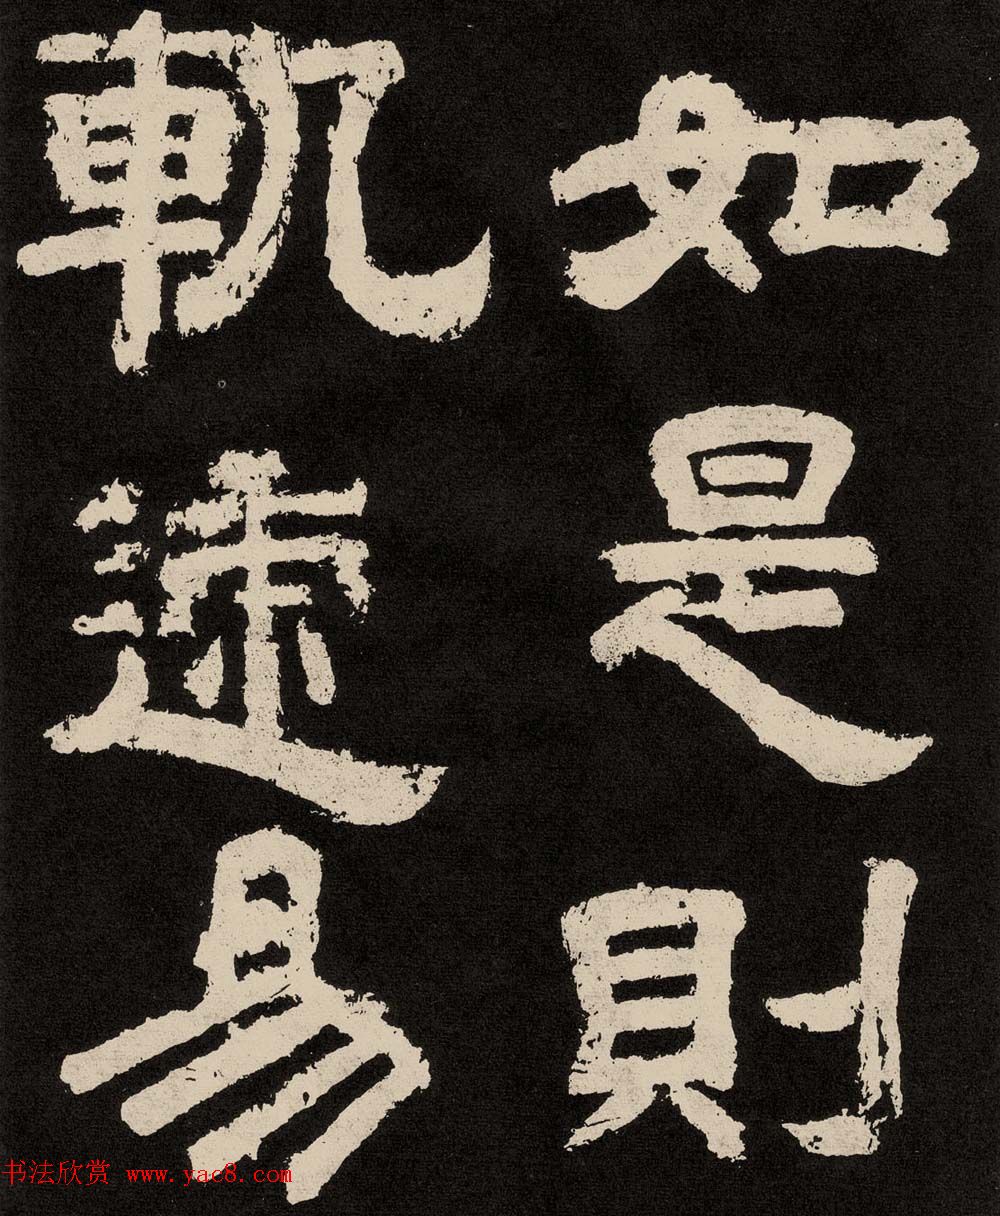 如是則
軌迹易
书法欣赏 www.yac8.com